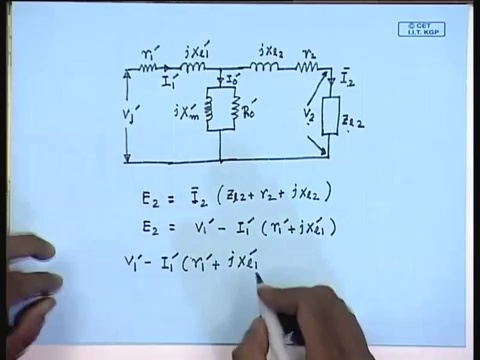 © CET
I.I.T. KGP
r₁′ jxl₁′ jxl₂ r₂
I₁′ I₀′ Ī₂
V₁′ jX′m R₀′ V₂ Zl₂
E₂ = Ī₂ (Zl₂ + r₂ + jxl₂)
E₂ = V₁′ − I₁′ (r₁′ + jxl₁′)
V₁′ − I₁′ (r₁′ + jxl₁′